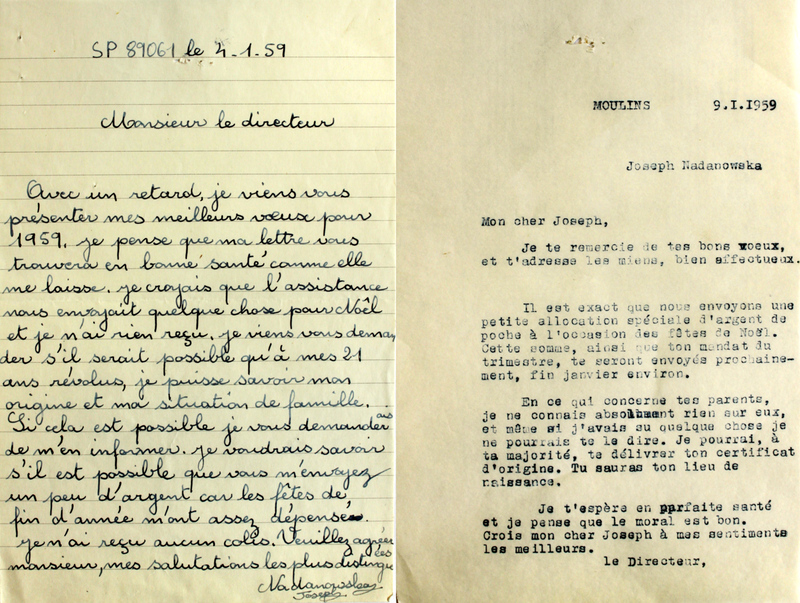 SP 89061 le 4-1-59
Monsieur le directeur
Avec un retard, je viens vous
présenter mes meilleurs vœux pour
1959. je pense que ma lettre vous
trouvera en bonne santé comme elle
me laisse. je croyais que l'assistance
nous envoyait quelque chose pour Noël
et je n'ai rien reçu. je viens vous deman
der s'il serait possible qu'à mes 21
ans révolus, je puisse savoir mon
origine et ma situation de famille.
Si cela est possible je vous demanderais
de m'en informer. je voudrais savoir
s'il est possible que vous m'envoyez
un peu d'argent car les fêtes de
fin d'année m'ont assez dépensé.
je n'ai reçu aucun colis. Veuillez agréer
monsieur, mes salutations les plus distingué
Nadanowska
Joseph
MOULINS 9.I.1959
Joseph Nadanowska
Mon cher Joseph,
Je te remercie de tes bons voeux,
et t'adresse les miens, bien affectueux.
Il est exact que nous envoyons une
petite allocation spéciale d'argent de
poche à l'occasion des fêtes de Noël.
Cette somme, ainsi que ton mandat du
trimestre, te seront envoyés prochaine-
ment, fin janvier environ.
En ce qui concerne tes parents,
je ne connais absolument rien sur eux,
et même si j'avais su quelque chose je
ne pourrais te le dire. Je pourrai, à
ta majorité, te délivrer ton certificat
d'origine. Tu sauras ton lieu de
naissance.
Je t'espère en parfaite santé
et je pense que le moral est bon.
Crois mon cher Joseph à mes sentiments
les meilleurs.
le Directeur,